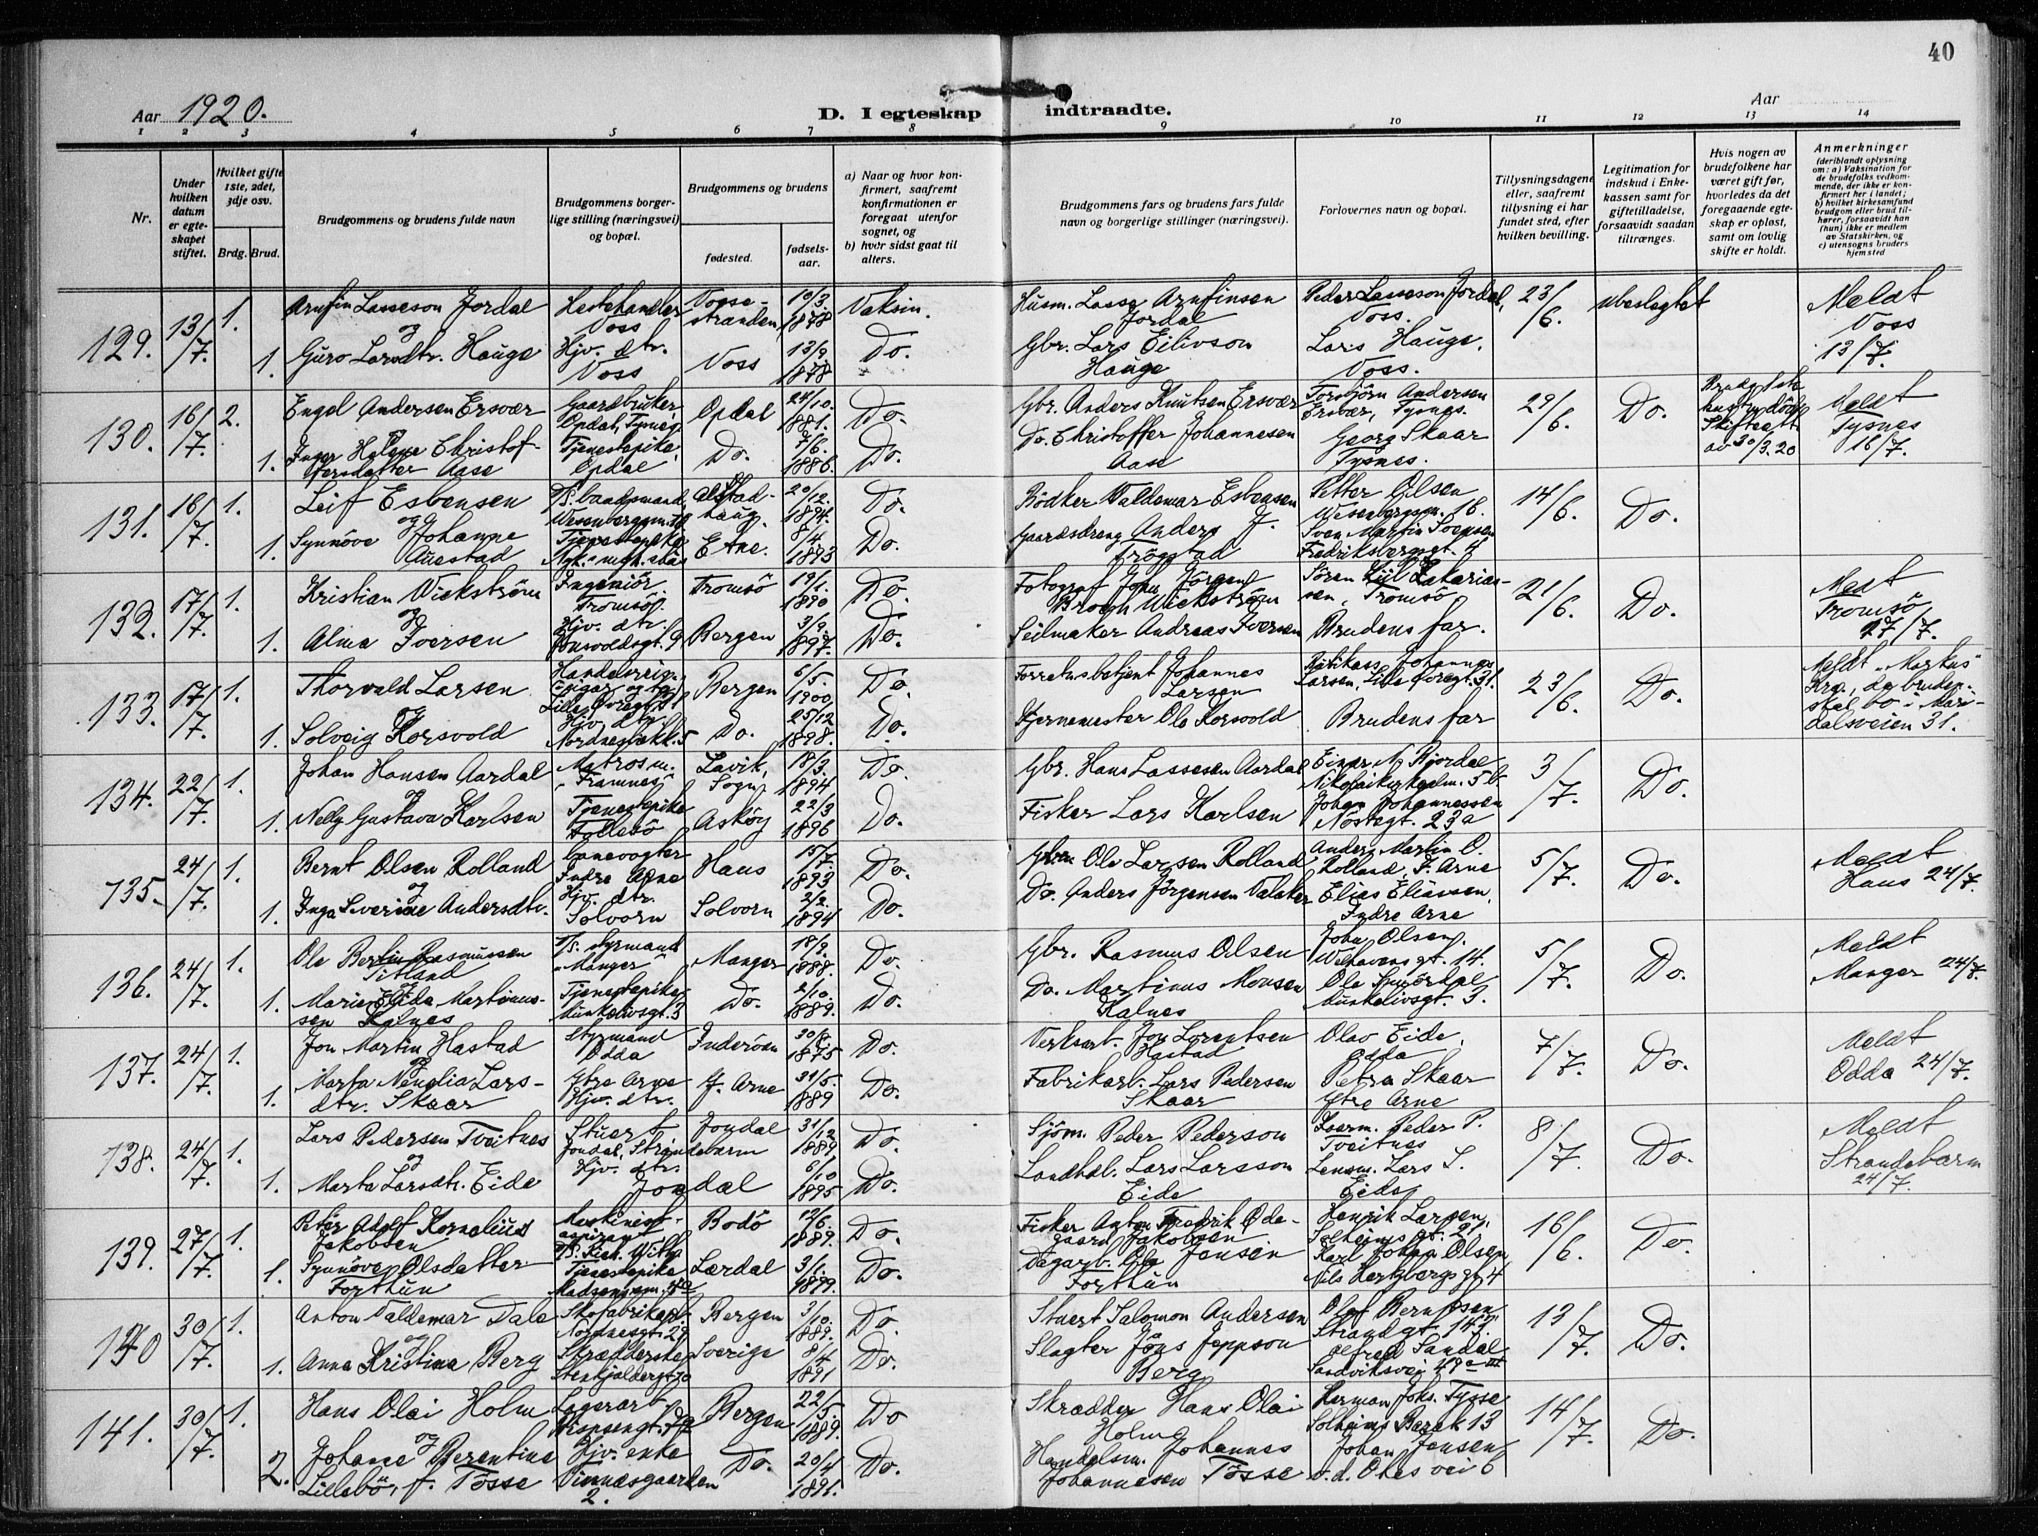 40
Aar 1920.
D. I egteskap indtraadte.
Aar
1 2 3 4 5 6 7 8 9 10 11 12 13 14
Nr.
Under hvilken datum er egteskapet stiftet.
Hvilket gifte 1ste, 2det, 3dje osv.
Brdg. Brud.
Brudgommens og brudens fulde navn
Brudgommens borgerlige stilling (næringsvei) og bopæl.
Brudgommens og brudens
fødested.
fødselsaar.
a) Naar og hvor konfirmert, saafremt konfirmationen er foregaat utenfor sognet, og
b) hvor sidst gaat til alters.
Brudgommens fars og brudens fars fulde navn og borgerlige stillinger (næringsvei).
Forlovernes navn og bopæl.
Tillysningsdagene eller, saafremt tillysning ei har fundet sted, efter hvilken bevilling.
Legitimation for indskud i Enkekassen samt for giftetilladelse, forsaavidt saadan tiltrænges.
Hvis nogen av brudefolkene har været gift før, hvorledes da det foregaaende egteskap er opløst, samt om lovlig skifte er holdt.
Anmerkninger
(deriblandt oplysning om: a) Vaksination for de brudefolks vedkommende, der ikke er konfirmert her i landet; b) hvilket kirkesamfund brudgom eller brud tilhører, forsaavidt han (hun) ikke er medlem av Statskirken, og c) utensogns bruders hjemsted
129. 13/7. 1. Arnfin Lasseson Jordal Hestehandler Voss Vossestranden 19/3 1878 Vaksin. Husm. Lasse Arnfinsen Jordal Peder Lasseson Jordal, Voss. 23/6. Ubeslegtet Meldt Voss 13/7.
og
1. Guro Larsdtr. Hauge Hjv. dtr. Voss Voss 13/9 1878 Do. Gbr. Lars Eilivson Hauge Lars Hauge, Voss.
130. 16/7. 2. Engel Andersen Ersvær Gaardbruker, Opdal, Tysnes Opdal 24/10. 1881. Do. Gbr. Anders Knutsen Ersvær Torbjörn Andersen Ersvær, Tysnes. 29/6. Do. Skifteatt av 30/3.20 Meldt Tysnes 16/7.
og
1. Inger Helene Christoffersdatter Aase Tjenestepike, Opdal Do. 7/6. 1886. Do. Do. Christoffer Johannesen Aase Georg Skaar Tysnes.
131. 16/7. 1. Leif Esbensen Alstadhaug. 20/12. 1894. Do. Bödker Valdemar Esbensen Petter Olsen Wesenbergsm. 16. 14/6. Do.
og
1. Synnöve Johanne Auestad Tjenestepike Etne. 8/4. 1893 Do. Gaardsdreng Anders J. Tröggstad Sven Martin Svensen Fredriksbergsgt.
132. 17/7. 1. Kristian Wickström Ingeniör. Tromsö. Tromsö 19/1. 1890 Do. Fotograf John Jörgen Brogh Wickström Sören Zakariassen, Tromsö 21/6. Do. Meldt Tromsö 17/7.
og
1. Alma Iversen Hjv. dtr. Jonsvoldsgt. 9 Bergen 3/9. 1897. Do. Seilmaker Andreas Iversen Brudens far.
133. 17/7. 1. Thorvald Larsen Bergen 6/5. 1900 Do. Forretn.betjent Johannes Larsen Johannes Larsen, Lille Övregt. 31. 23/6. Do. Meldt "Markus" Krg., da bruden skal bo Maridalsveien 31.
og
1. Solveig Korsvold Hjv. dtr. Nordnesbakk. 5 Do. 25/12 1898. Do. Gjernemester Ole Korsvold Brudens far
134. 22/7. 1. Johan Hansen Aardal Matros m. "Framnes" Lavik, Sogn 18/3. 1894 Do. Gbr. Hans Lassesen Aardal Einar N. Bjordal Nikolaikirkealm. 5 b. 3/7. Do.
og
1. Nelly Gustava Karlsen Tjenestepike Follesö Asköy 22/3 1896 Do. Fisker Lars Karlsen Johan Johannessen Nöstegt. 23a
135. 24/7. 1. Bernt Olsen Rolland Banevogter Indre Arne Haus 15/7. 1893 Do. Gbr. Ole Larsen Rolland Anders Martin O. Rolland, I. Arne 5/7. Do. Meldt Haus 24/7.
og
1. Inga Severine Andersdtr. Hjv. dtr. Solvorn Solvorn 2/2. 1894 Do. Do. Anders Jörgensen Valaker Elias Eliassen, Indre Arne
136. 24/7. 1. Ole Bertin Rasmussen Titland D/S. styrmand "Manger" Manger 18/9. 1888. Do. Gbr. Rasmus Olsen John Olsen, Welhavensgt. 14. 5/7. Do. Meldt Manger 24/7.
og
1. Marie Elida Martinussen Kalnes Tjenestepike Munkelivsgt. 3 Do. 2/10. 1889. Do. Do. Martinus Monsen Kalnes Ole Munkelivsgt. 3.
137. 24/7. 1. Jon Martin Hastad Styrmand Odda Inderöen 30/ 1875 Do. Verksarb. Jon Lorentsen Hastad Olav Eide, Odda 7/7. Do. Meldt Odda 24/7.
og
1. Marta Larsdtr. Skaar Ytre Arne Hjv. dtr. Y. Arne 31/5. 1889 Do. Fabrikarb. Lars Pedersen Skaar Petra Skaar Ytre Arne
138. 24/7. 1. Lars Pedersen Tveitnes Stuert Jondal, Strandebarm Jondal 31/2 1889 Do. Sjöm. Peder Pederson Peder P. Tveitnes 8/7. Do. Meldt Strandebarm 24/7.
og
1. Marta Larsdtr. Eide Hjv. dtr. Jondal 6/10 1895 Do. Landhdl. Lars Larsson Eide Lensm. Lars L. Eide
139. 27/7. 1. Peter Adolf Kornelius Jakobsen Maskinistaspirant Bodö 12/6. 1889. Do. Fisker Anton Fredrik Ödegaard Jakobsen Henrik Larsen, Solheimsgt. 21. 16/6. Do.
1. Synnöve Olsdatter Forthun Tjenestepike Lærdal 3/1. 1899. Do. Dagarb. Ole Jensen Forthun Karl Johan Olsen Nils Hertzbergs gt. 4
140 30/7. 1. Anton Valdemar Dale Skofabrikarb. Nordnesgt. 29 Bergen 3/10. 1889. Do Stuert Salomon Andersen Olaf Berntsen Strandgt. 143. 13/7. Do.
og
1. Anna Kristina Berg Skrædderske Stenkjeldergt. 10 Sverige 8/4 1891 Do. Slagter Jöns Jeppson Berg Alfred Sandal Sandviksvei 47
141. 30/7. 1. Hans Olai Holm Lagerarb. Bergen 22/5. 1889. Do Skrædder Hans Olai Holm Herman Johs. Tysse Solheims Barak 13 14/7. Do.
og
2. Johane Berentine Lillebö, f. Tösse Hjv. enke Vinnæsgaarden 2. Do. 20/4 1891. Do. Handelsm. Johannes Johannesen Tösse Johan Jensen v. d. Ohesvei 6